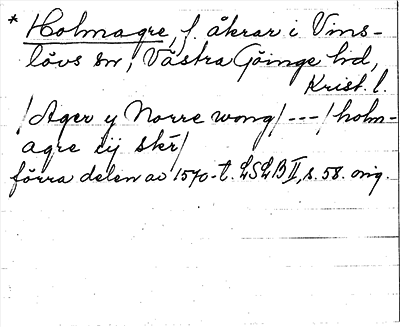 * Holmagre, f. åkrar i Vins-
lövs sn, Västra Göinge hd,
Krist. l.
/Ager y Norre wong/---/holm-
agre iij skr/
förra delen av 1570-t. LSLB II, s. 58. orig.